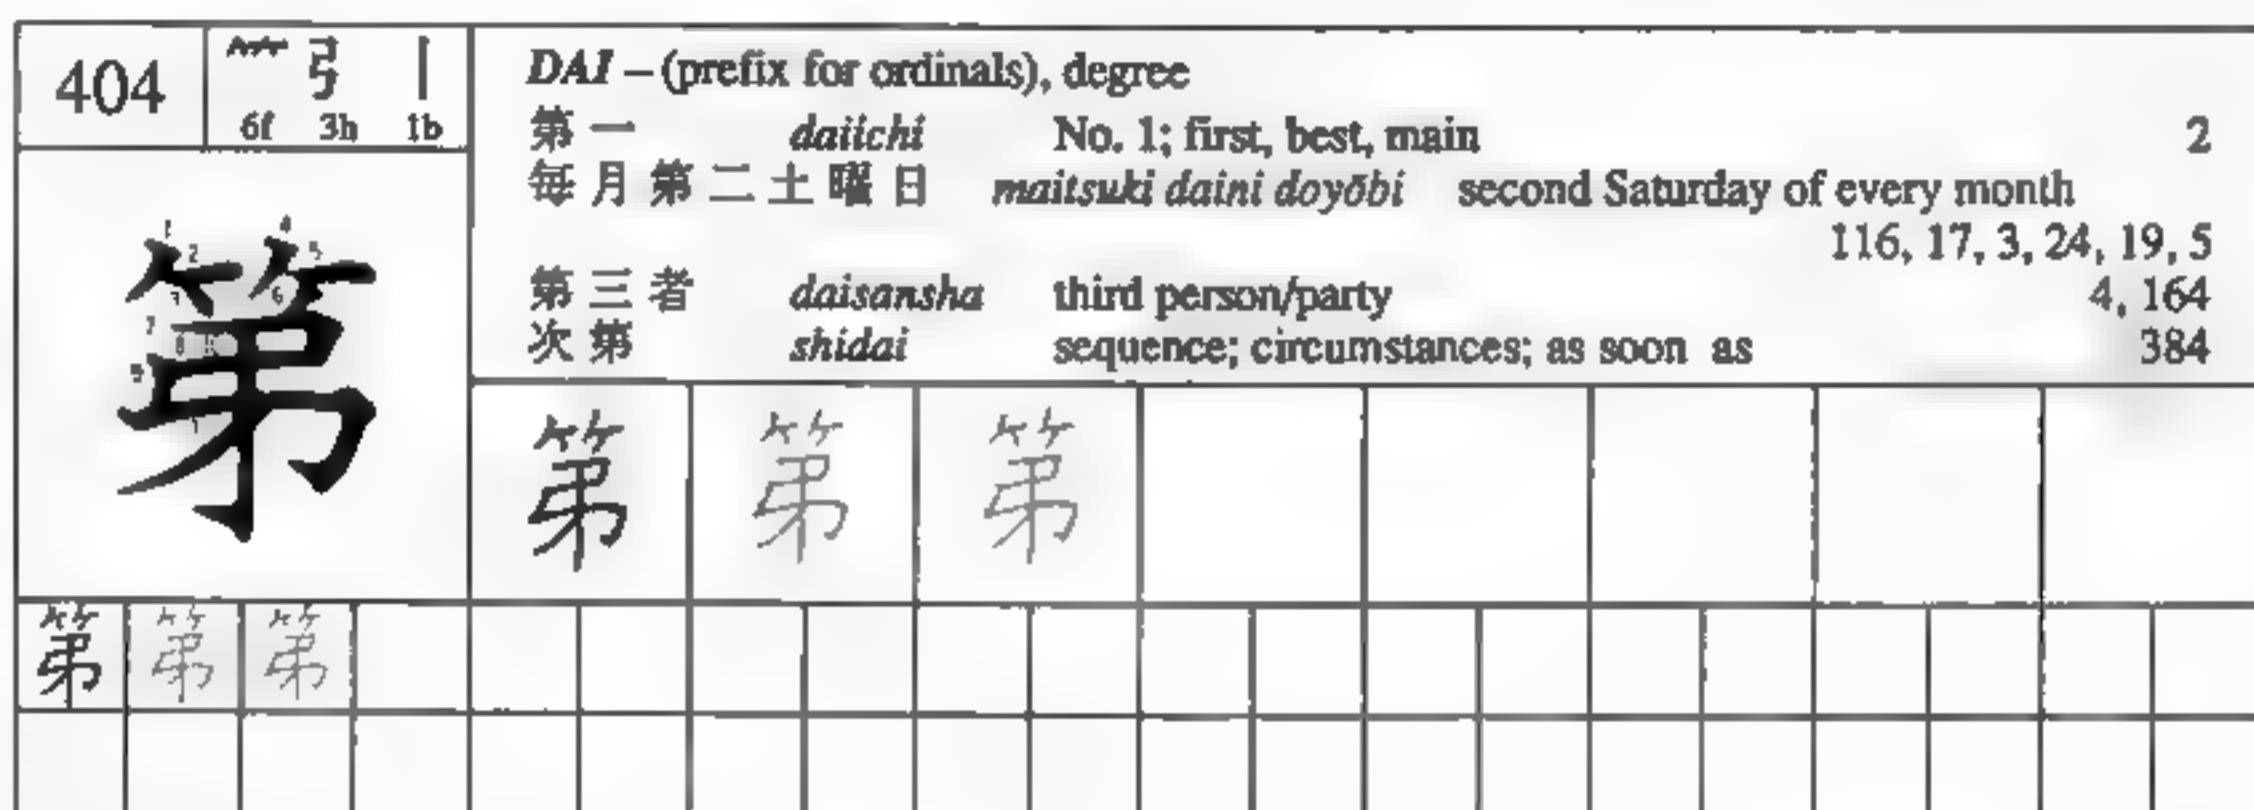 404
𥫗 弓 丨
6f 3h 1b
DAI – (prefix for ordinals), degree
第一 daiichi No. 1; first, best, main 2
毎月第二土曜日 maitsuki daini doyōbi second Saturday of every month
116, 17, 3, 24, 19, 5
第三者 daisansha third person/party 4, 164
次第 shidai sequence; circumstances; as soon as 384
第
第 第 第
第 第 第